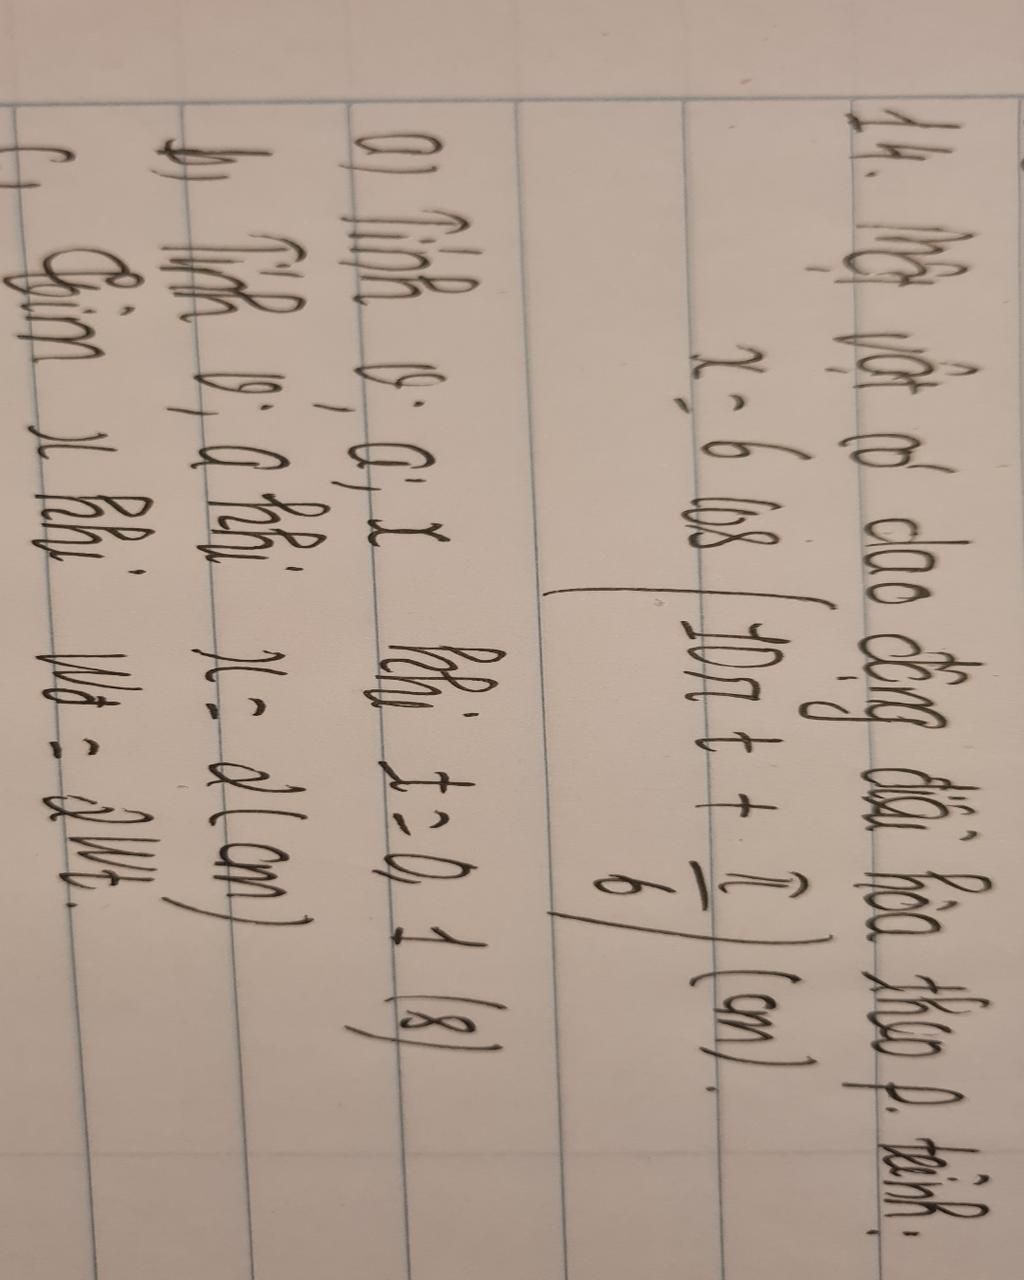 14. Một vật có dao động điều hòa theo p. trình.
x = 6 cos (10πt + π/6) (cm).
a) Tính v; a; x khi t = 0,1 (s)
b) Tính v; a khi x = 2 (cm)
c) Tìm x khi Wđ = 2Wt.